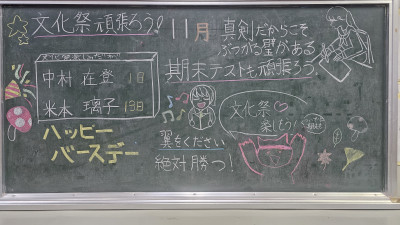 文化祭頑張ろう!
中村 在登 1日
米本 璃子 13日
ハッピー
バースデー
11月
真剣だからこそ
ぶつかる壁がある
期末テストも頑張ろう
文化祭♡
楽しもう!
翼をください
絶対勝つ!